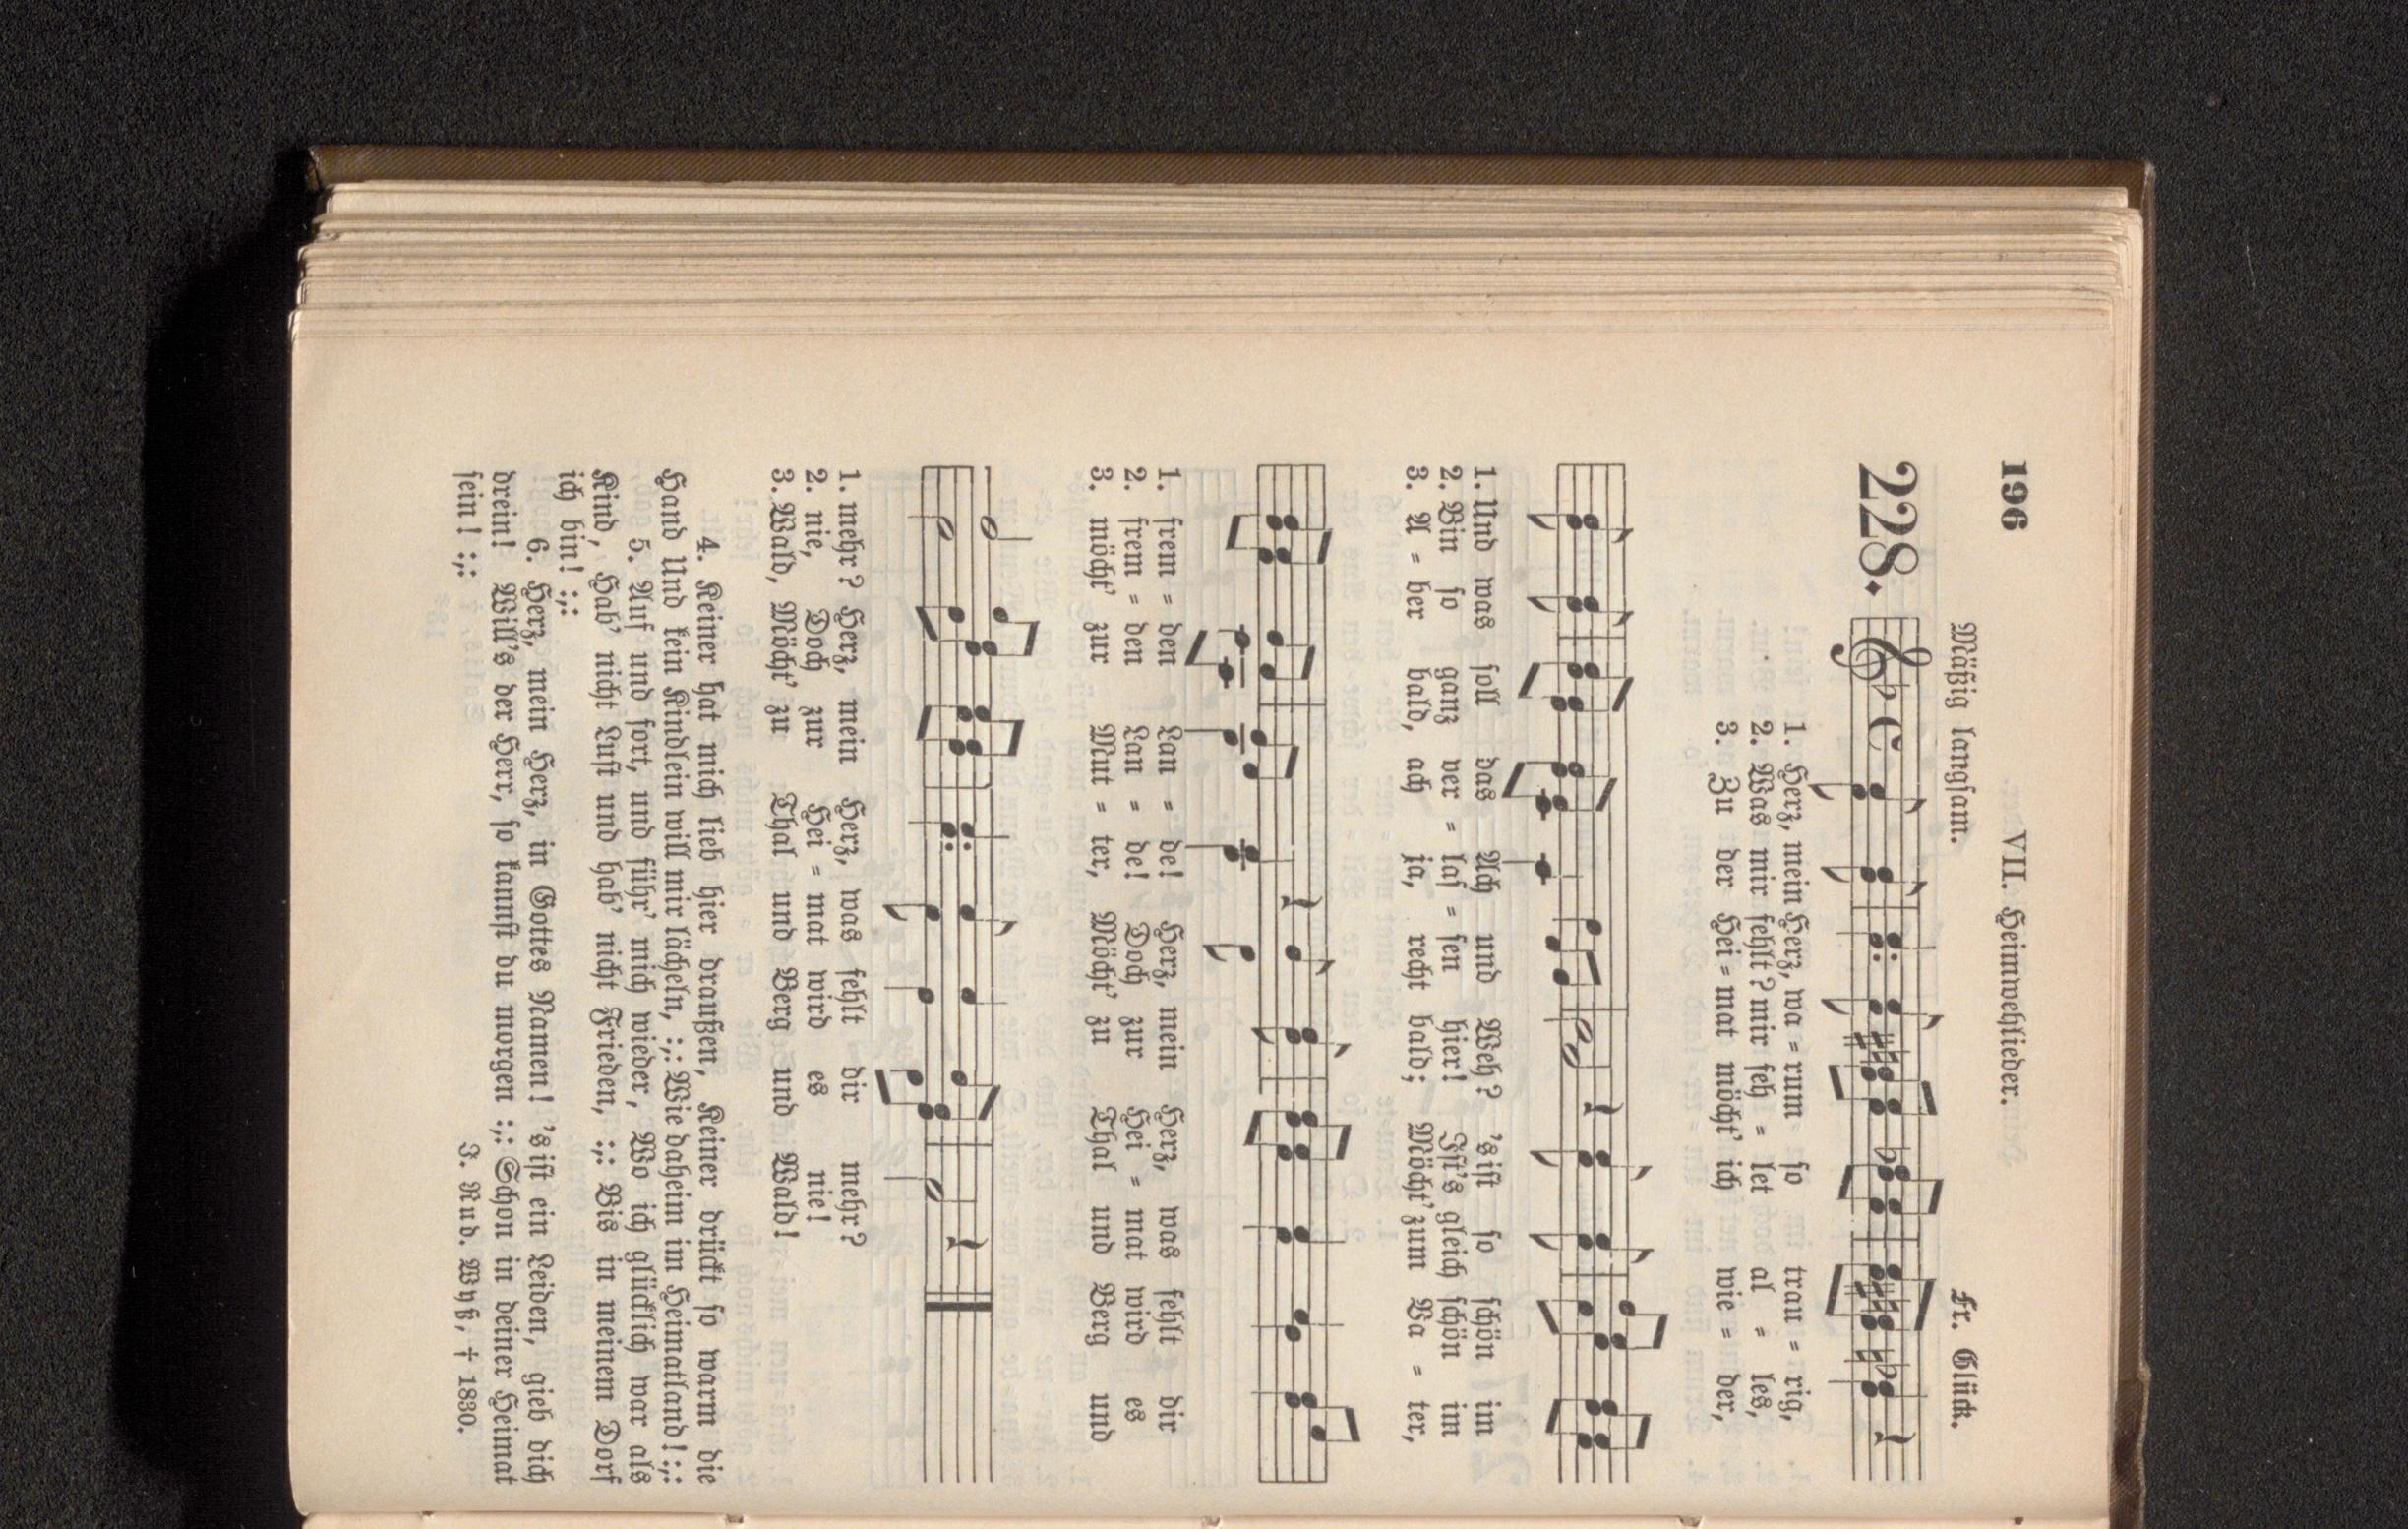 196 VII. Heimwehlieder.
Mäßig langsam. Fr. Glück.
228.
1. Herz, mein Herz, wa = rum so trau = rig,
2. Was mir fehlt? mir feh = let al = les,
3. Zu der Hei = mat möcht' ich wie = der,
1. Und was soll das Ach und Weh? 's ist so schön im
2. Bin so ganz ver = las = sen hier! Ist's gleich schön im
3. A = ber bald, ach ja, recht bald; Möcht' zum Va = ter,
1. frem = den Lan = de! Herz, mein Herz, was fehlt dir
2. frem = den Lan = de! Doch zur Hei = mat wird es
3. möcht' zur Mut = ter, Möcht' zu Thal und Berg und
1. mehr? Herz, mein Herz, was fehlt dir mehr?
2. nie, Doch zur Hei = mat wird es nie!
3. Wald, Möcht' zu Thal und Berg und Wald!
4. Keiner hat mich lieb hier draußen, Keiner drückt so warm die
Hand Und kein Kindlein will mir lächeln, :,: Wie daheim im Heimatland! :,:
5. Auf und fort, und führ' mich wieder, Wo ich glücklich war als
Kind, Hab' nicht Lust und hab' nicht Frieden, :,: Bis in meinem Dorf
ich bin! :,:
6. Herz, mein Herz, in Gottes Namen! 's ist ein Leiden, gieb dich
drein! Will's der Herr, so kannst du morgen :,: Schon in deiner Heimat
sein! :,:
J. Rud. Wyß, † 1830.